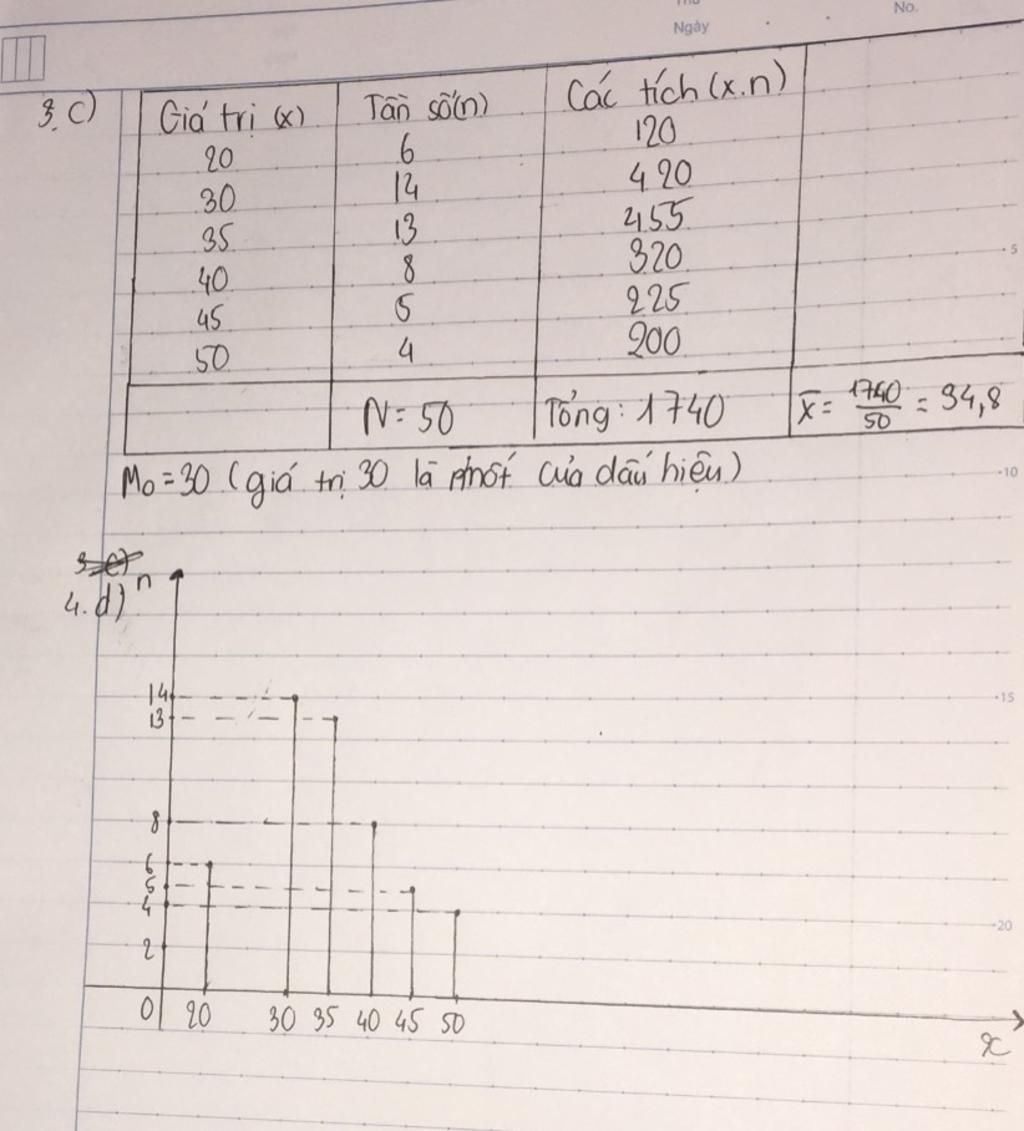 No.
Ngày
3. c)
Giá trị (x) Tần số (n) Các tích (x.n)
20 6 120
30 14 420
35 13 455
40 8 320
45 5 225
50 4 200
N = 50 Tổng: 1740 X̄ = 1740/50 = 34,8
M₀ = 30 (giá trị 30 là mốt của dấu hiệu)
5
10
15
20
4. d)
n
14
13
8
6
5
4
2
0 20 30 35 40 45 50
x